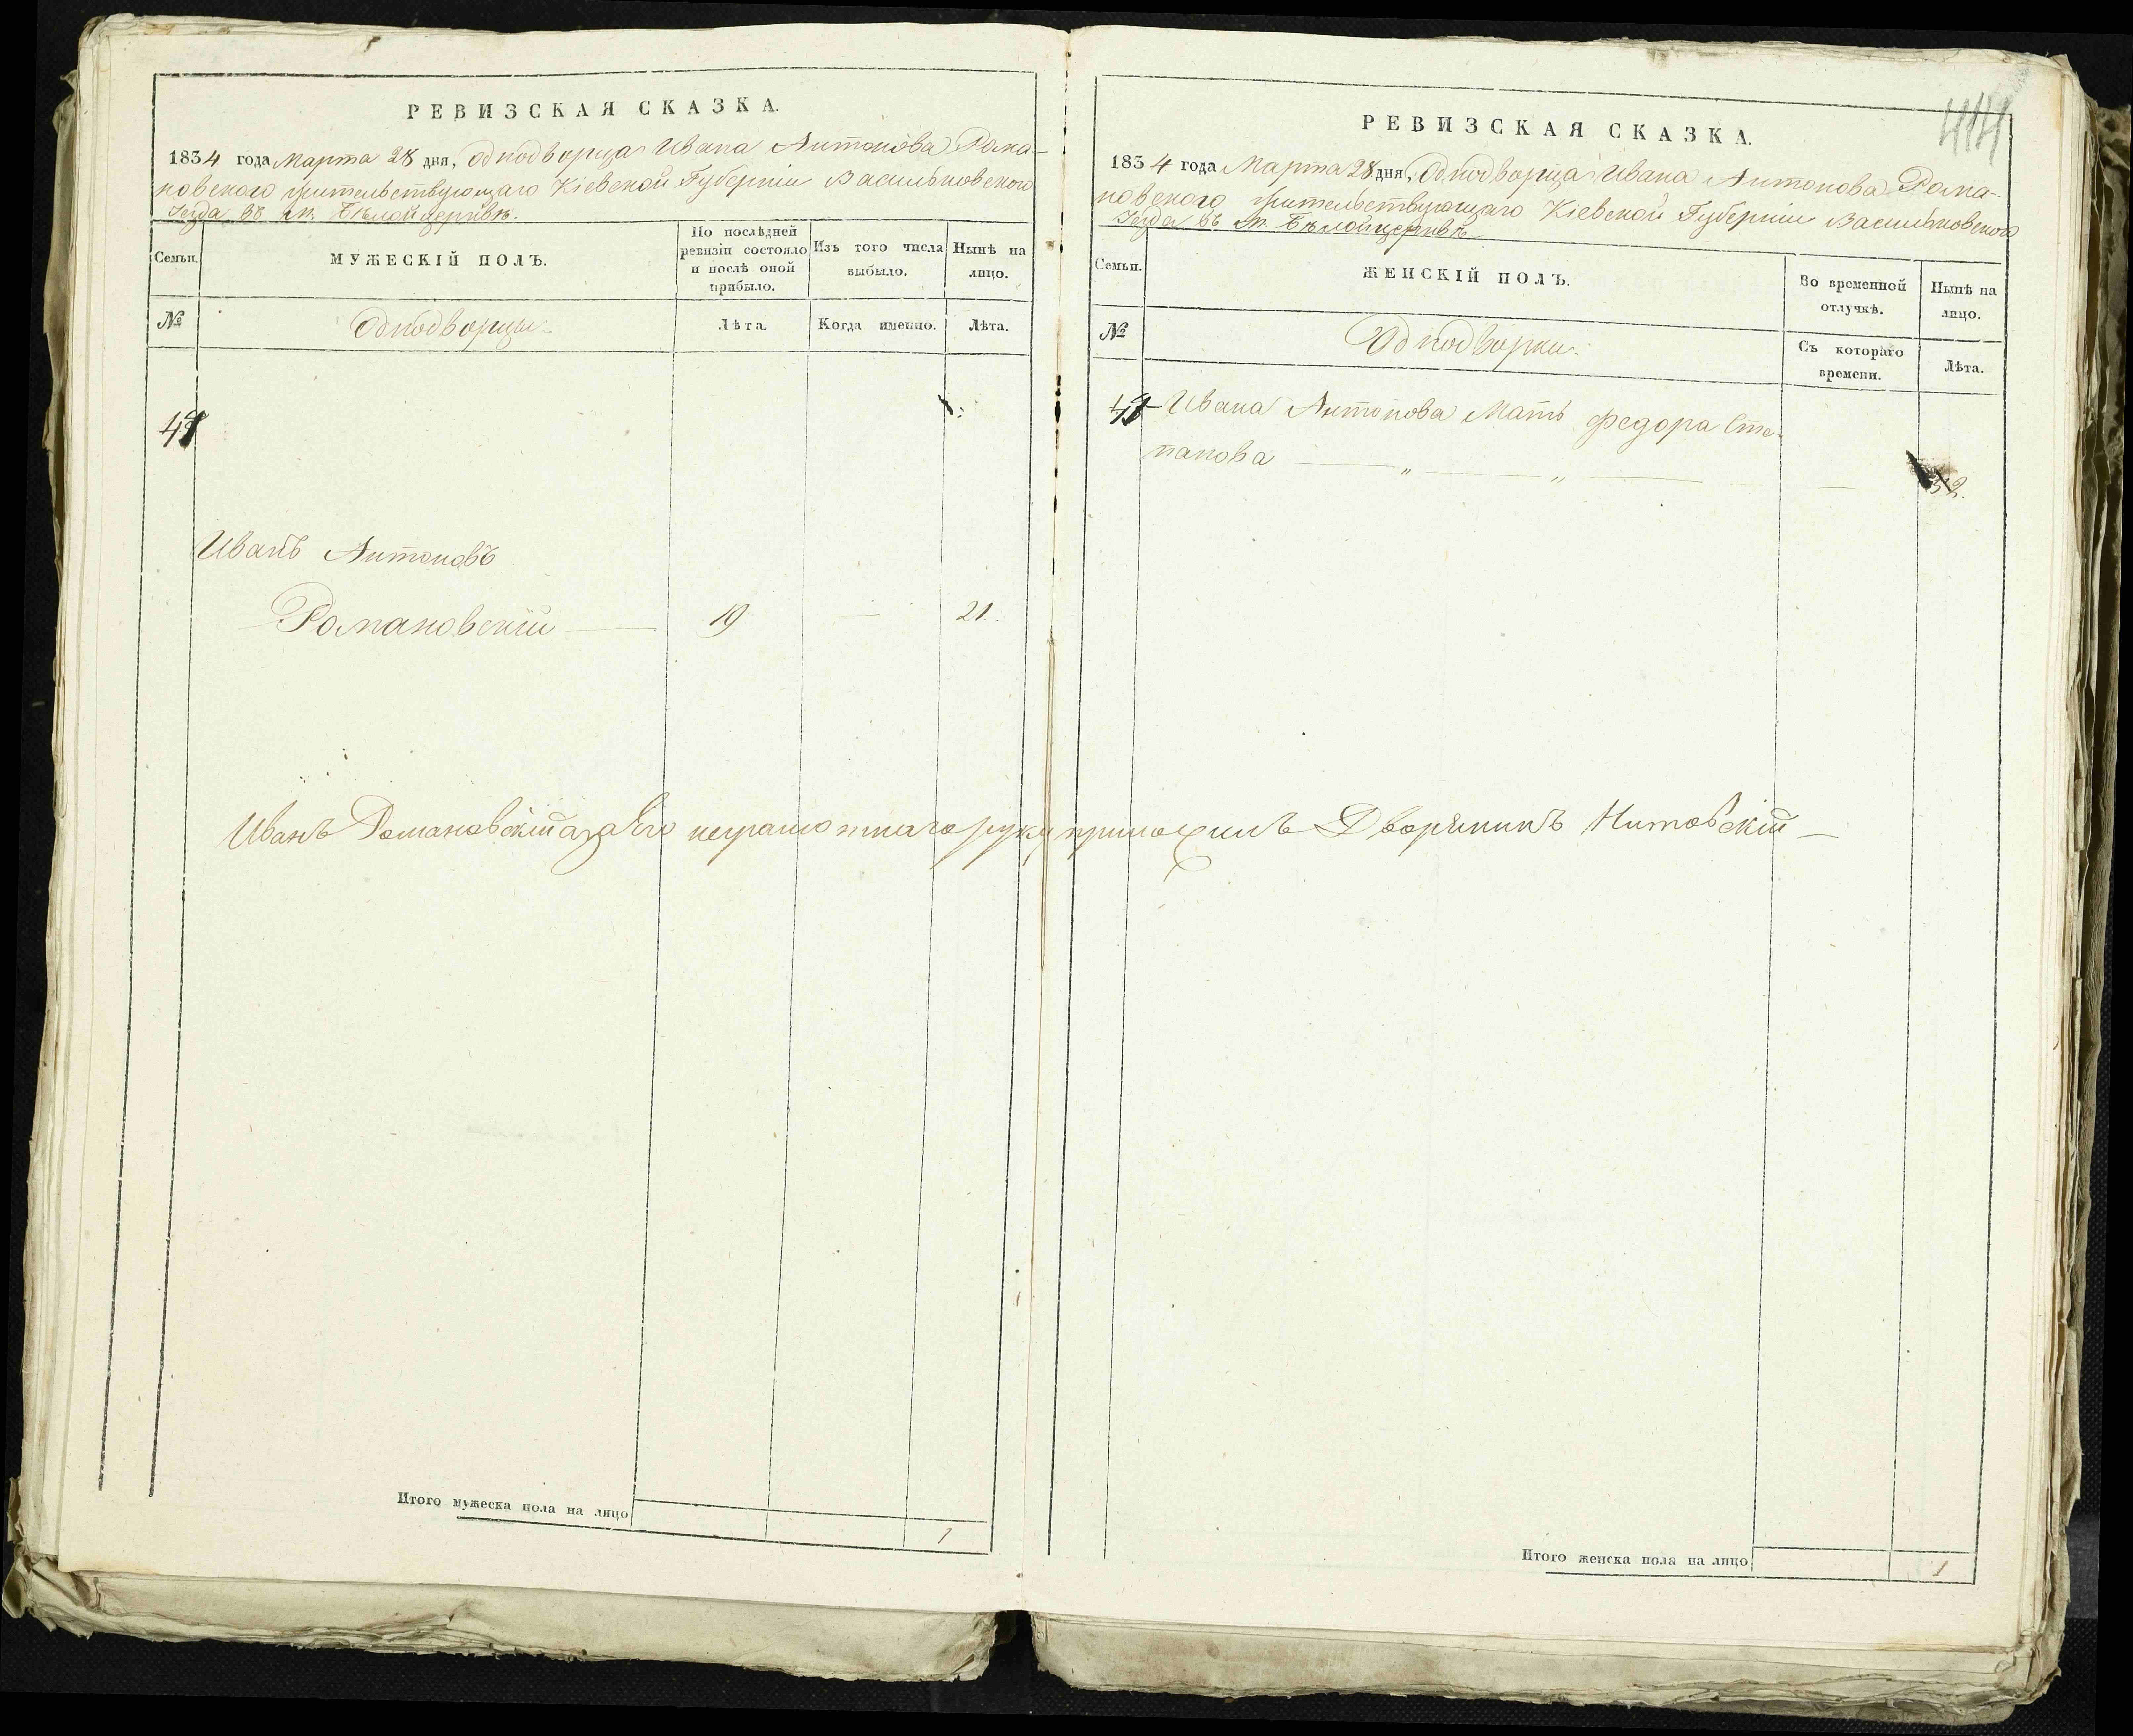 РЕВИЗСКАЯ СКАЗКА.
1834 года Марта 28 дня, Однодворца Ивана Антонова Рома-
новского жительствующаго Кіевской Губерніи Васильковского
уезда въ м. Белойцерквѣ.
Семьи.
МУЖЕСКІЙ ПОЛЪ.
По послѣдней
ревизіи состояло
и послѣ оной
прибыло.
Изъ того числа
выбыло.
Нынѣ на
лицо.
№
Однодворцы.
Лѣта.
Когда именно.
Лѣта.
Иванъ Антоновъ
Романовскій — 19 — 21.
Итого мужеска пола на лицо
1
444
РЕВИЗСКАЯ СКАЗКА.
1834 года Марта 28 дня, Однодворца Ивана Антонова Рома-
новского жительствующаго Кіевской Губерніи Васильковского
уезда въ м. Белойцерквѣ
Семьи.
ЖЕНСКІЙ ПОЛЪ.
Во временной
отлучкѣ.
Нынѣ на
лицо.
№
Однодворки.
Съ котораго
времени.
Лѣта.
Ивана Антонова Мать Федора Сте-
панова — „ — „ — —
Иванъ Романовскій а за Его неграмотнаго руку приложилъ Дворянинъ Нитовскій —
Итого женска пола на лицо
1